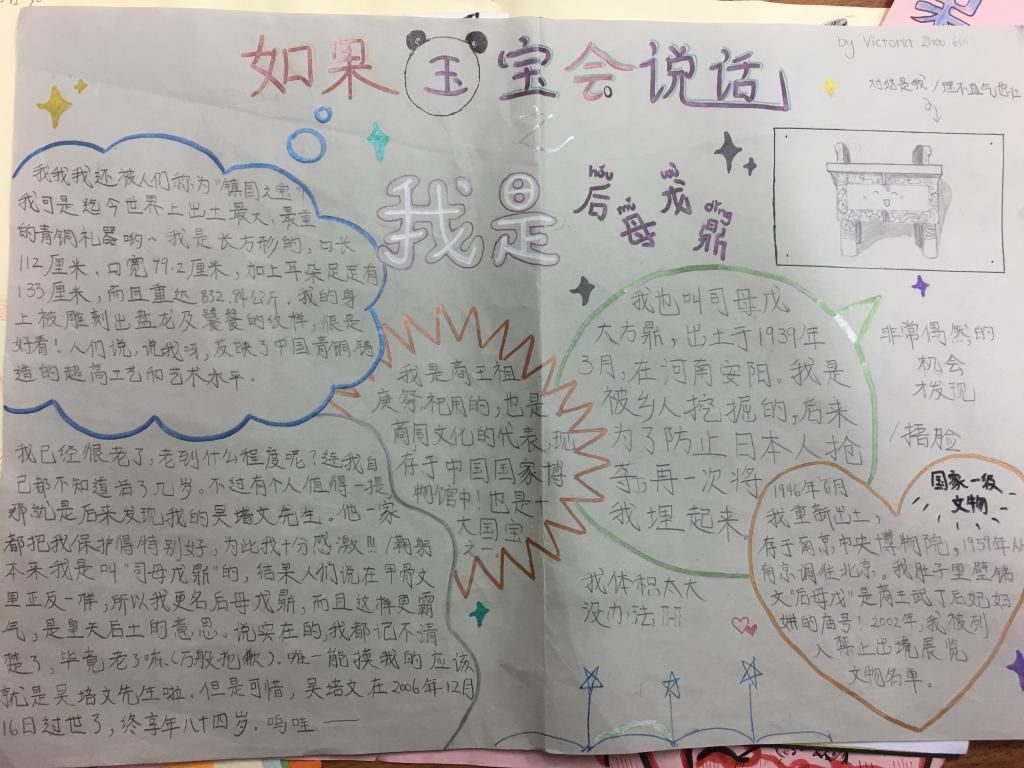 如果国宝宝会说话
by Victoria Zhou 6(1)
之
我是
hòu mǔ wù dǐng
后母戊鼎
对这是我/理不直气也壮
我我我还被人们称为“镇国之宝”!
我可是迄今世界上出土最大、最重
的青铜礼器哟~我是长方形的,口长
112厘米、口宽79.2厘米,加上耳朵足足有
133厘米,而且重达832.84公斤.我的身
上被雕刻出盘龙及饕餮的纹样,很是
好看!人们说,说我呀,反映了中国青铜铸
造的超高工艺和艺术水平.
我是商王祖
庚祭祀用的,也是
商周文化的代表,现
存于中国国家博
物馆中!也是
大国宝
之一
我也叫司母戊
大方鼎,出土于1939年
3月,在河南安阳。我是
被乡人挖掘的,后来
为了防止日本人抢
夺,再一次将
我埋起来
非常偶然的
机会
发现
/捂脸
我已经很老了,老到什么程度呢?连我自
己都不知道活了几岁。不过有个人值得一提,
那就是后来发现我的吴培文先生。他一家
都把我保护得特别好,为此我十分感激!!!/鞠躬
本来我是叫“司母戊鼎”的,结果人们说在甲骨文
里正反一样,所以我更名后母戊鼎,而且这样更霸
气,是皇天后土的意思。说实在的,我都记不清
楚了,毕竟老了嘛(万般抱歉).唯一能摸我的应该
就是吴培文先生啦.但是可惜,吴培文在2006年12月
16日过世了,终享年八十四岁.呜哇——
我体积太大
没办法
国家一级
文物
1946年6月
我重新出土,
存于南京中央博物院。1959年从
南京调往北京。我肚子里壁铭
文“后母戊”是商王武丁后妃妇
妌的庙号!2002年,我被列
入禁止出境展览
文物名单.